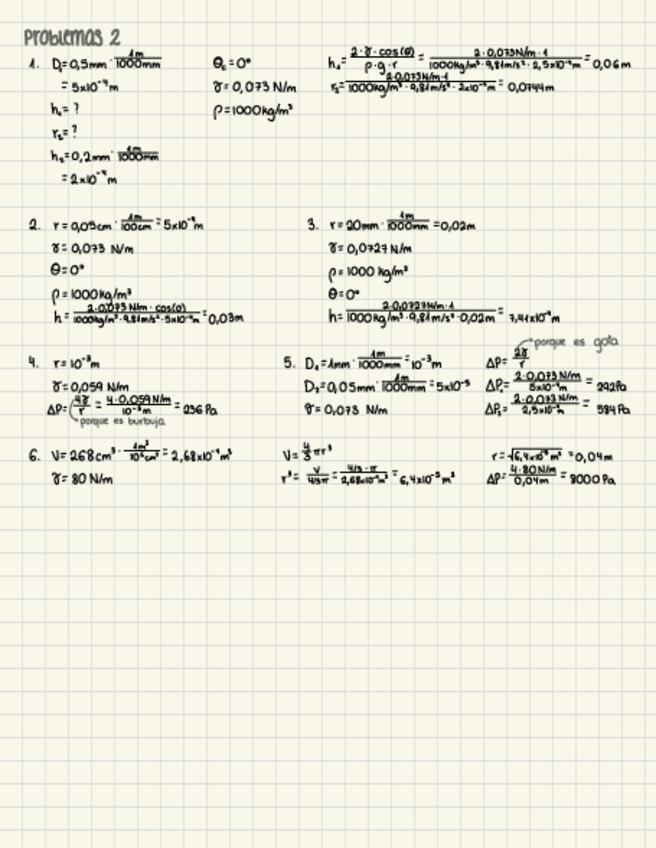 Problemas 2
1. D₁=0,5mm · 1m/1000mm
= 5x10⁻⁴m
h₁= ?
r₂= ?
h₂=0,2mm · 1m/1000mm
= 2x10⁻⁴m
θc=0°
γ=0,073 N/m
ρ=1000kg/m³
h₁= 2·γ·cos(θ)/ρ·g·r = 2·0,073N/m·1/1000kg/m³·9,81m/s²·2,5x10⁻⁴m = 0,06m
r₂= 2·0,073N/m·1/1000kg/m³·9,81m/s²·2x10⁻⁴m = 0,0744m
2. r=0,05cm · 1m/100cm = 5x10⁻⁴m
γ=0,073 N/m
θ=0°
ρ=1000kg/m³
h= 2·0,073 N/m·cos(0)/1000kg/m³·9,81m/s²·5x10⁻⁴m = 0,03m
3. r=20mm · 1m/1000mm =0,02m
γ=0,0727N/m
ρ=1000 kg/m³
θ=0°
h= 2·0,0727N/m·1/1000kg/m³·9,81m/s²·0,02m = 7,41x10⁻⁴m
4. r=10⁻³m
γ=0,059 N/m
ΔP= 4γ/r = 4·0,059N/m/10⁻³m = 236 Pa
porque es burbuja
5. D₁=1mm · 1m/1000mm =10⁻³m
D₂=0,05mm · 1m/1000mm =5x10⁻⁵
γ=0,073 N/m
porque es gota
ΔP= 2γ/r
ΔP₁= 2·0,073N/m/5x10⁻⁴m = 292Pa
ΔP₂= 2·0,073N/m/2,5x10⁻⁴m = 584Pa
6. V=268cm³ · 1m³/10⁶cm³ = 2,68x10⁻⁴m³
γ=80 N/m
V= 4/3 πr³
r³= V/4/3π = 4/3·π/2,68x10⁻⁴m³ = 6,4x10⁻⁵m³
r=√6,4x10⁻⁵m³ =0,04m
ΔP= 4·80N/m/0,04m = 8000Pa